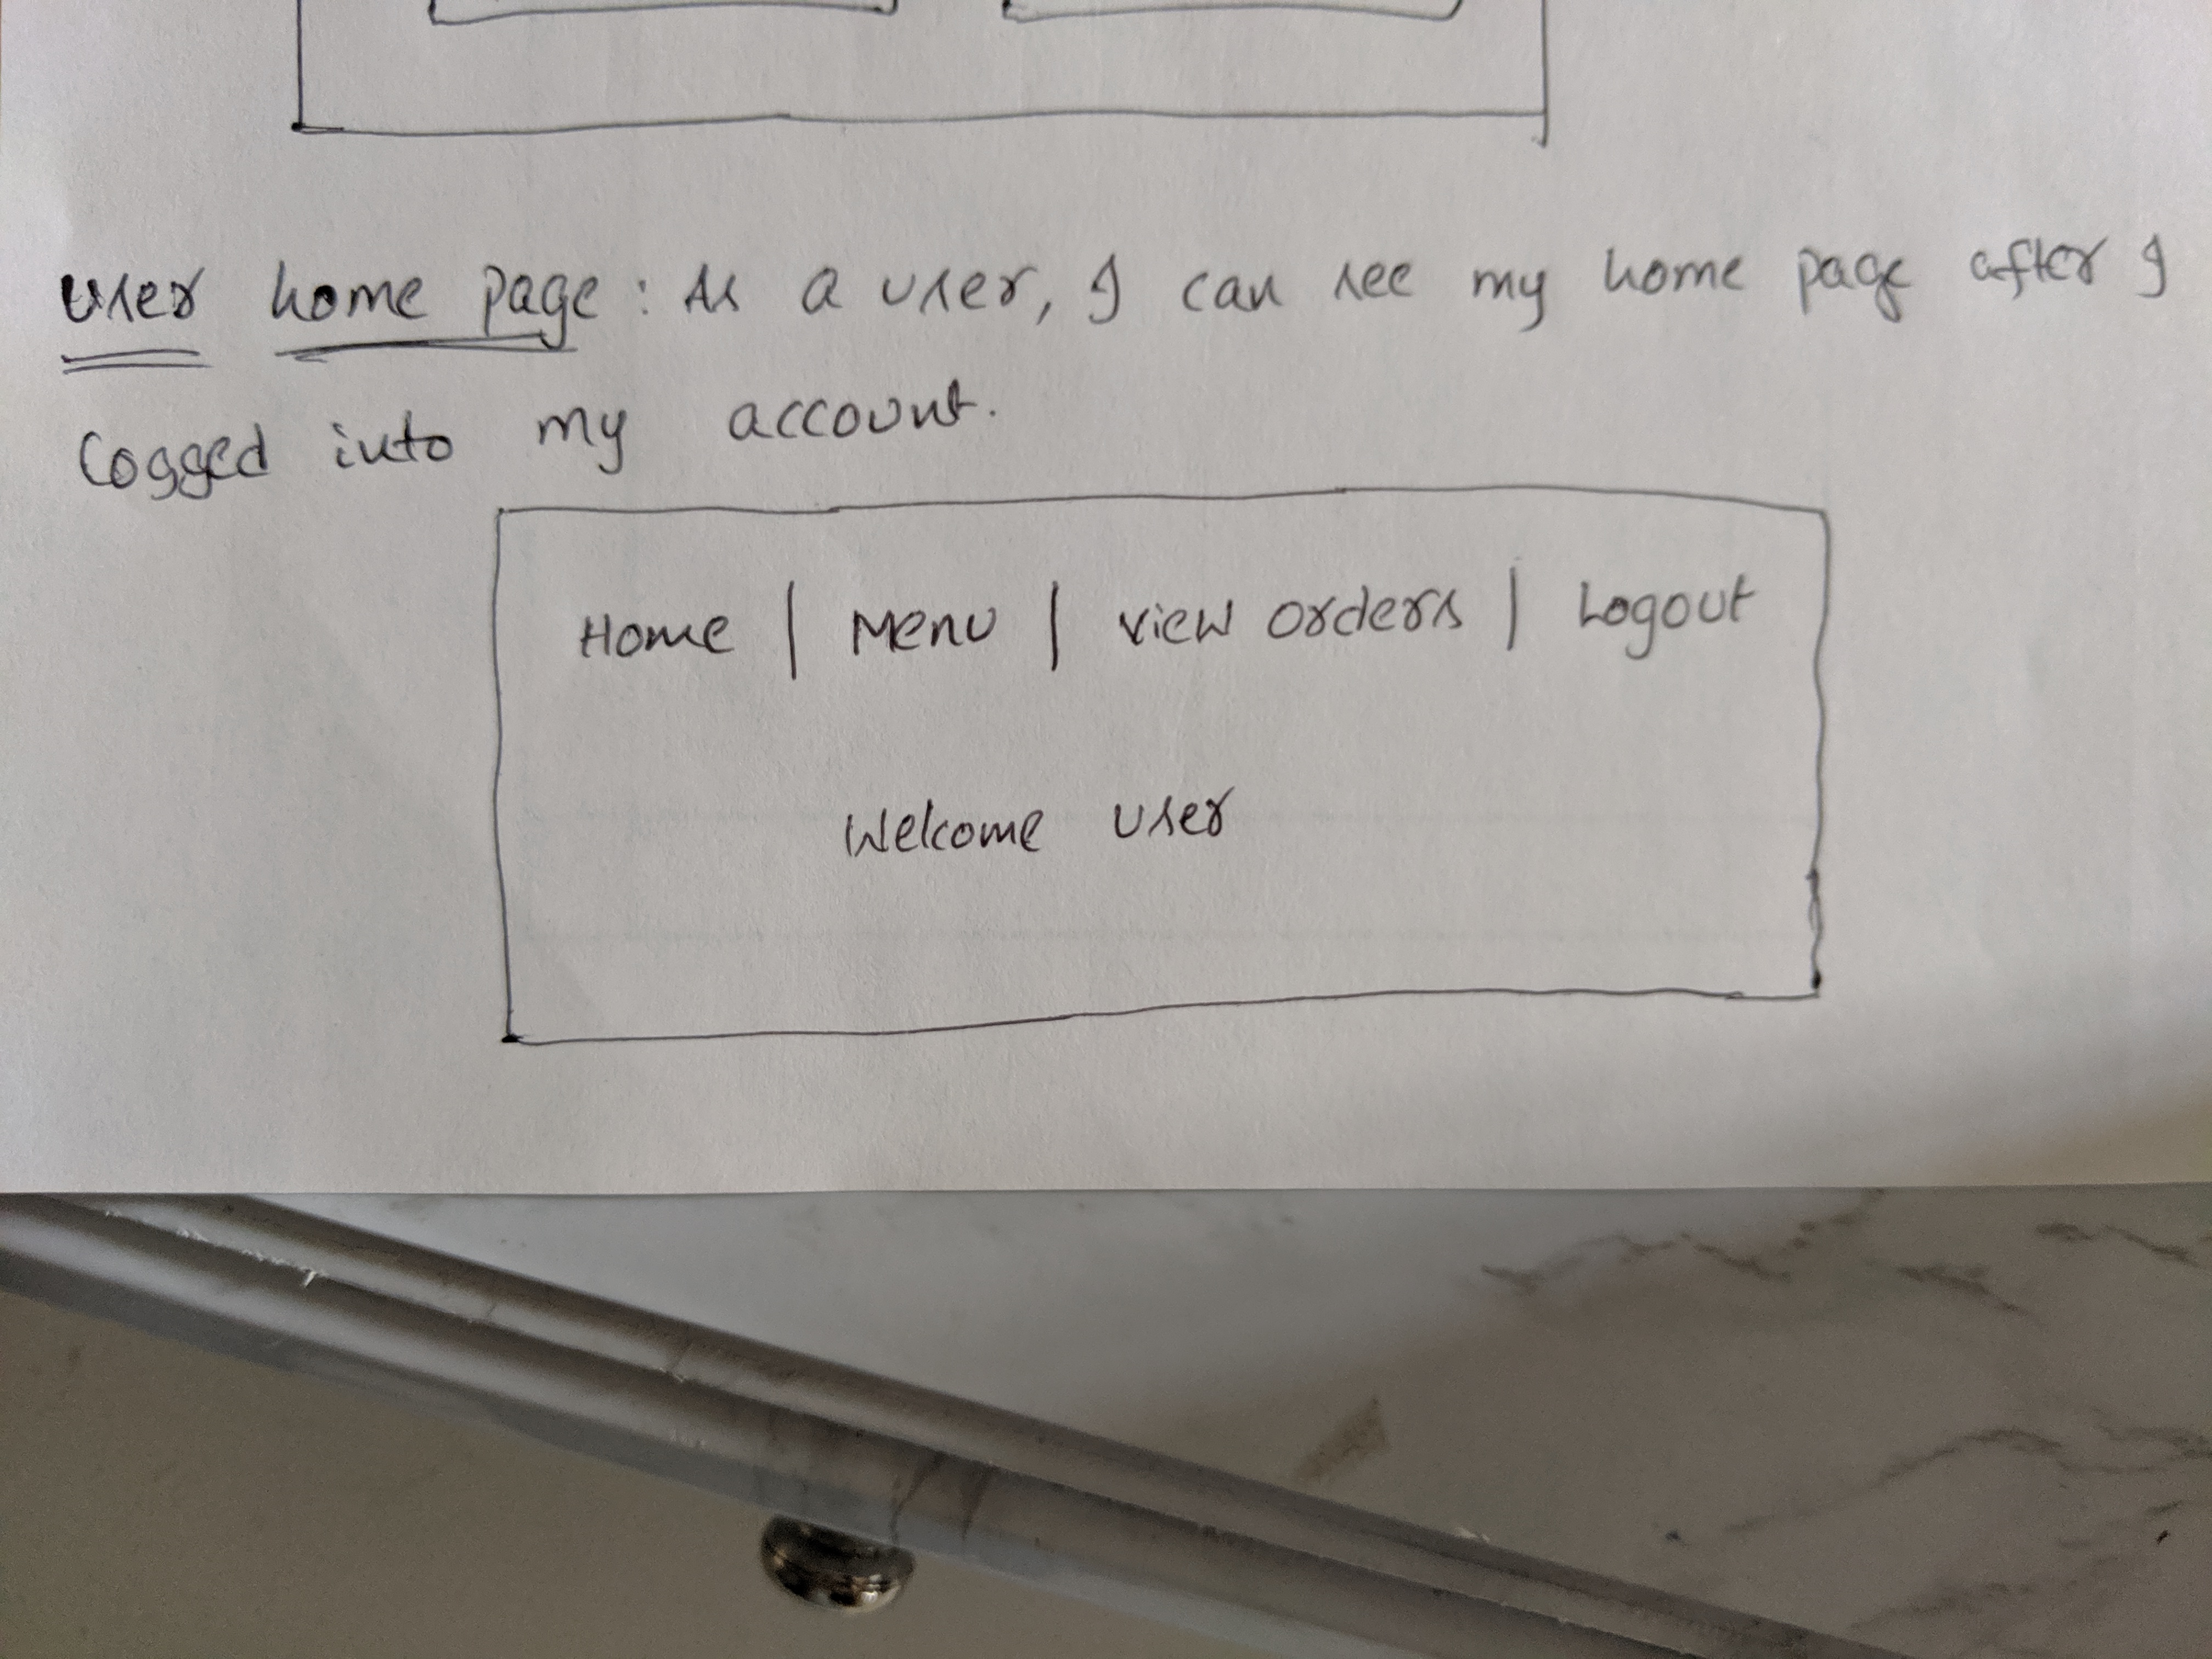 User home page: As a user, I can see my home page after I
logged into my account.
Home | Menu | view orders | Logout
Welcome user